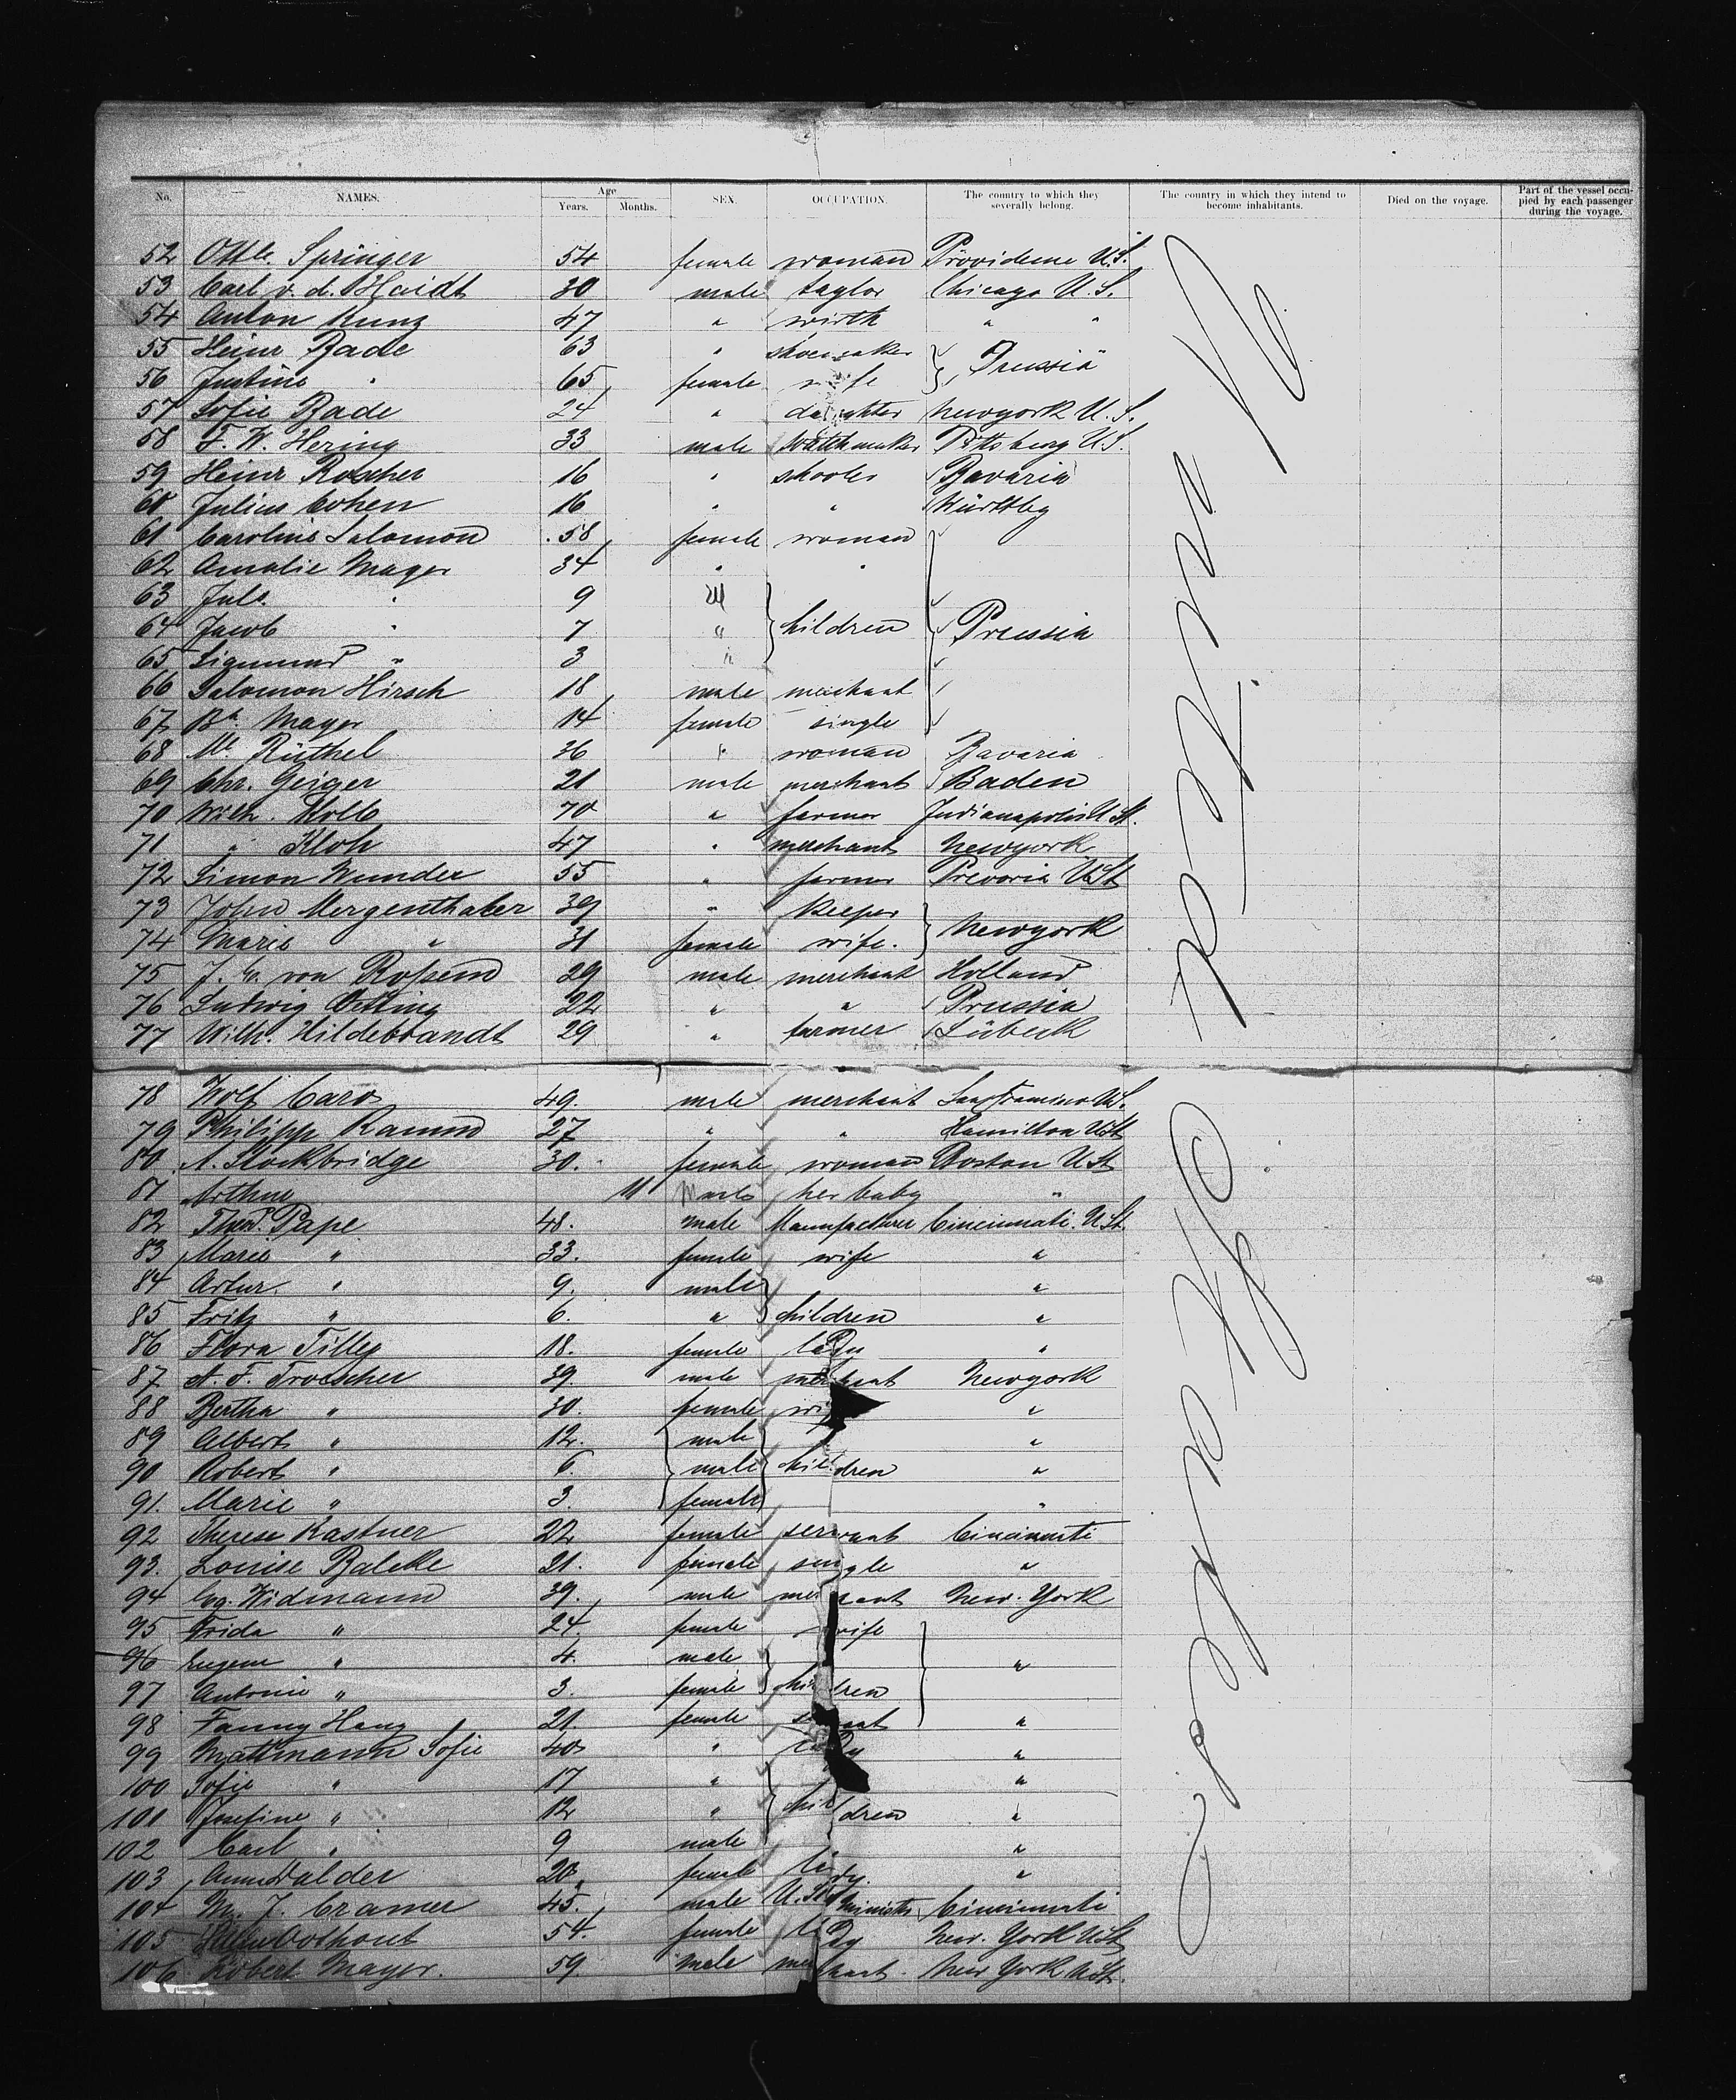 No. NAMES. Age Years. Months. SEX. OCCUPATION. The country to which they severally belong. The country in which they intend to become inhabitants. Died on the voyage. Part of the vessel occupied by each passenger during the voyage.
52 Ottle. Springer 54 female woman Providence U.S.
53 Carl v. d. Haidt 30 male taylor Chicago U.S.
54 Anton Kunz 47 " wirth " "
55 Heinr Bade 63 " shoemaker Prussia
56 Justine " 65 female wife
57 Sofie Bade 24 " daughter Newyork U.S.
58 F. W. Hering 33 male Watchmaker Pittsburg U.S.
59 Heinr Roscher 16 " schooler Bavaria
60 Julius Cohen 16 " " Württbg
61 Caroline Salomon 58 female woman
62 Amalie Mayer 34 " "
63 Jule. " 9
64 Jacob " 7 " children Prussia
65 Sigmund " 3 "
66 Salomon Hirsch 18 male merchant
67 Bh. Mayer 14 female single
68 Me. Rüthel 36 " woman Bavaria
69 Chr. Geiger 21 male merchant Baden
70 Wilh. Kolb 70 " farmer Indianapolis U St.
71 " Kloh 47 " merchant Newyork
72 Simon Wunder 55 " farmer U St
73 John Mergenthaler 39 " Keeper
74 Marie " 31 female wife. Newyork
75 von 29 male merchant Holland
76 Ludwig Oetting 22 " " Prussia
77 Wilh. Hildebrandt 29 " farmer Lübeck
78 Wolf Caro 49. male merchant San Francisco U.S.
79 Philipp Ramm 27 " " Hamilton U St
80 A. Stockbridge 30. female woman Boston U St
81 Arthur 11 male her baby "
82 Theod. Pape 48. male Manufacturer Cincinnati. U St.
83 Marie " 33. female wife "
84 Artur. " 9. male "
85 Fritz " 6. " children "
86 Flora Tilley 18. female lady "
87 A. F. Troescher 39. male merchant Newyork
88 Bertha " 30. female wife "
89 Albert " 12. male "
90 Robert " 6. male children "
91. Marie " 3. female "
92 Therese Kastner 22 female servant Cincinnati
93. Louise Balcke 21. female single "
94 Widmann 39. male merchant New. York
95 Frida " 24. female wife
96 Eugene " 4. male "
97 Antonie " 3. female children
98 Fanny Haug 21. female servant "
99 Mattmann Sofie 40 " lady "
100 Sofie " 17 " "
101 Josefine " 12 " children "
102 Carl " 9 male "
103 Anna Halder 20. female lady. "
104 M. J. Cramer 45. male U. St. Minister Cincinnati
105 Oothout 54. female lady New. York U St
106 Robert Mayer. 59. Male merchant. New York U St.